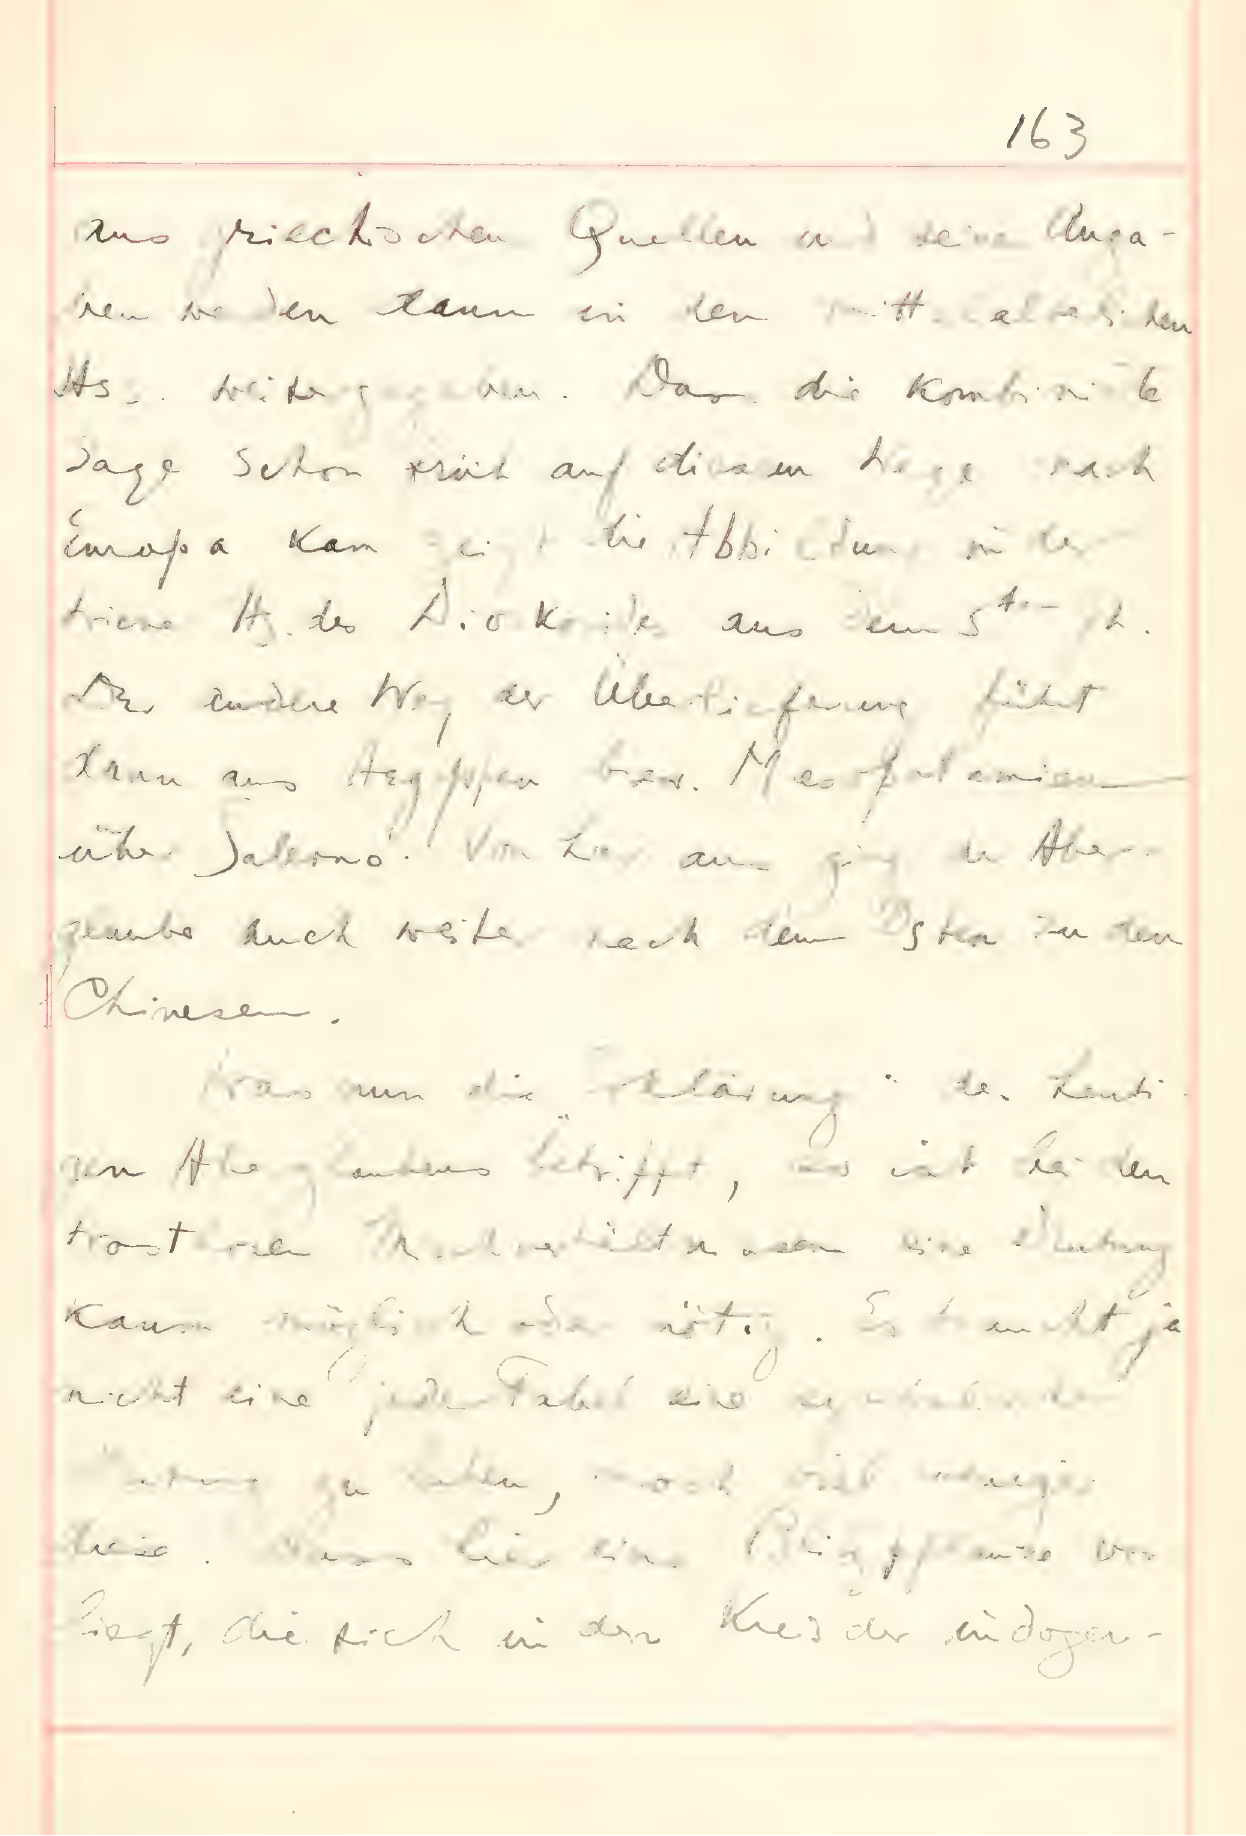 163
aus griechischen Quellen und seine Anga-
ben werden dann in den mittelalterlichen
Hss. weitergegeben. Dass die kombinierte
Sage schon früh auf diesem Wege nach
Europa kam zeigt die Abbildung in der
Wiener Hs. des Dioskorides aus dem 5ten Jh.
Der andere Weg der Überlieferung führt
dann aus Aegyppen bzw. Mesopotamien
über Salerno. Von hier aus ging der Aber-
glaube auch weiter nach dem Osten zu den
Chinesen.
Was nun die „Erklärung" des heuti-
gen Aberglaubens betrifft, so ist bei den
trostlosen eine Deutung
kaum möglich oder nötig. Es braucht ja
nicht eine jede Fabel eine
Deutung zu haben, noch viel weniger
diese. Dass hier eine vor
liegt, die sich in den Kreis der indoger-